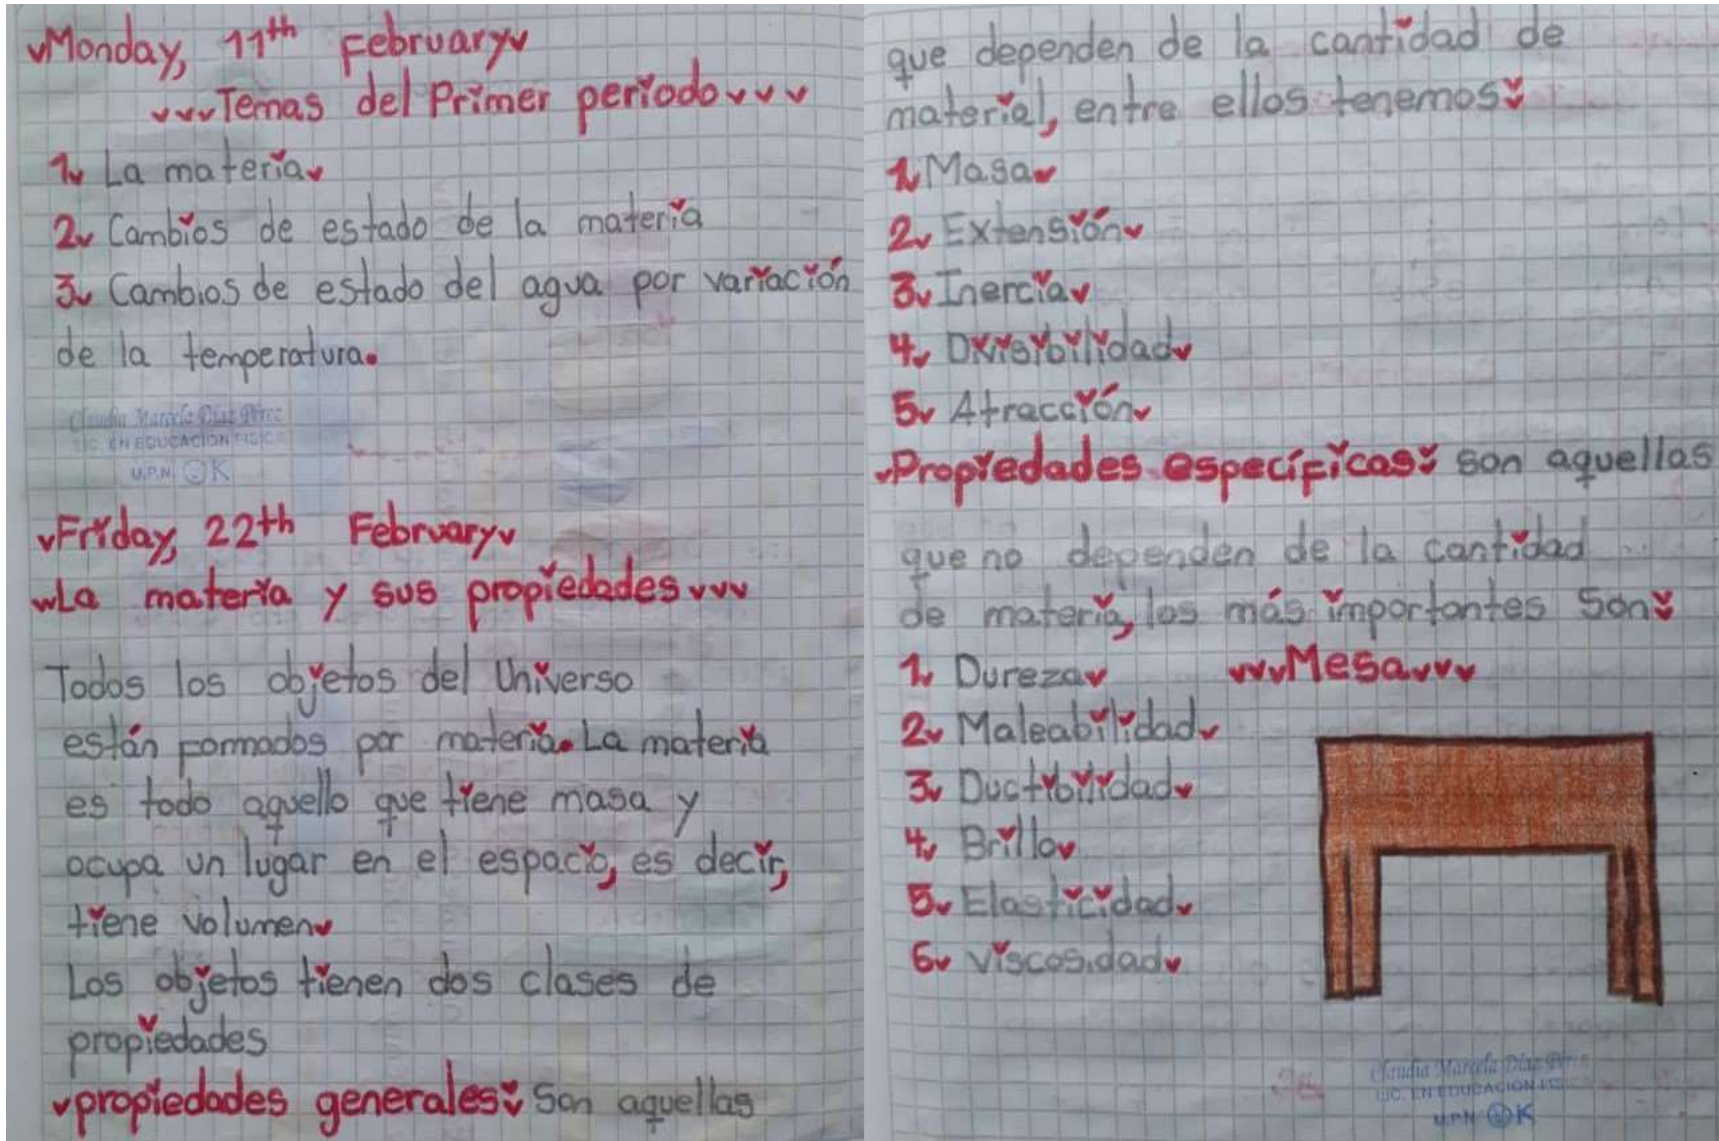 Monday, 11th February
Temas del Primer periodo
1. La materia.
2. Cambios de estado de la materia
3. Cambios de estado del agua por variación
de la temperatura.
Claudia Marcela Díaz Pérez
LIC. EN EDUCACION FISICA
U.P.N. OK
Friday, 22th February
La materia y sus propiedades
Todos los objetos del Universo
están formados por materia. La materia
es todo aquello que tiene masa y
ocupa un lugar en el espacio, es decir,
tiene volumen.
Los objetos tienen dos clases de
propiedades
propiedades generales: Son aquellas
que dependen de la cantidad de
material, entre ellos tenemos:
1. Masa.
2. Extensión.
3. Inercia.
4. Divisibilidad.
5. Atracción.
Propiedades específicas: son aquellas
que no dependen de la cantidad
de materia, las más importantes Son:
1. Dureza.
Mesa
2. Maleabilidad.
3. Ductibilidad.
4. Brillo.
5. Elasticidad.
6. Viscosidad.
Claudia Marcela Díaz Pérez
LIC. EN EDUCACION FISICA
U.P.N. OK